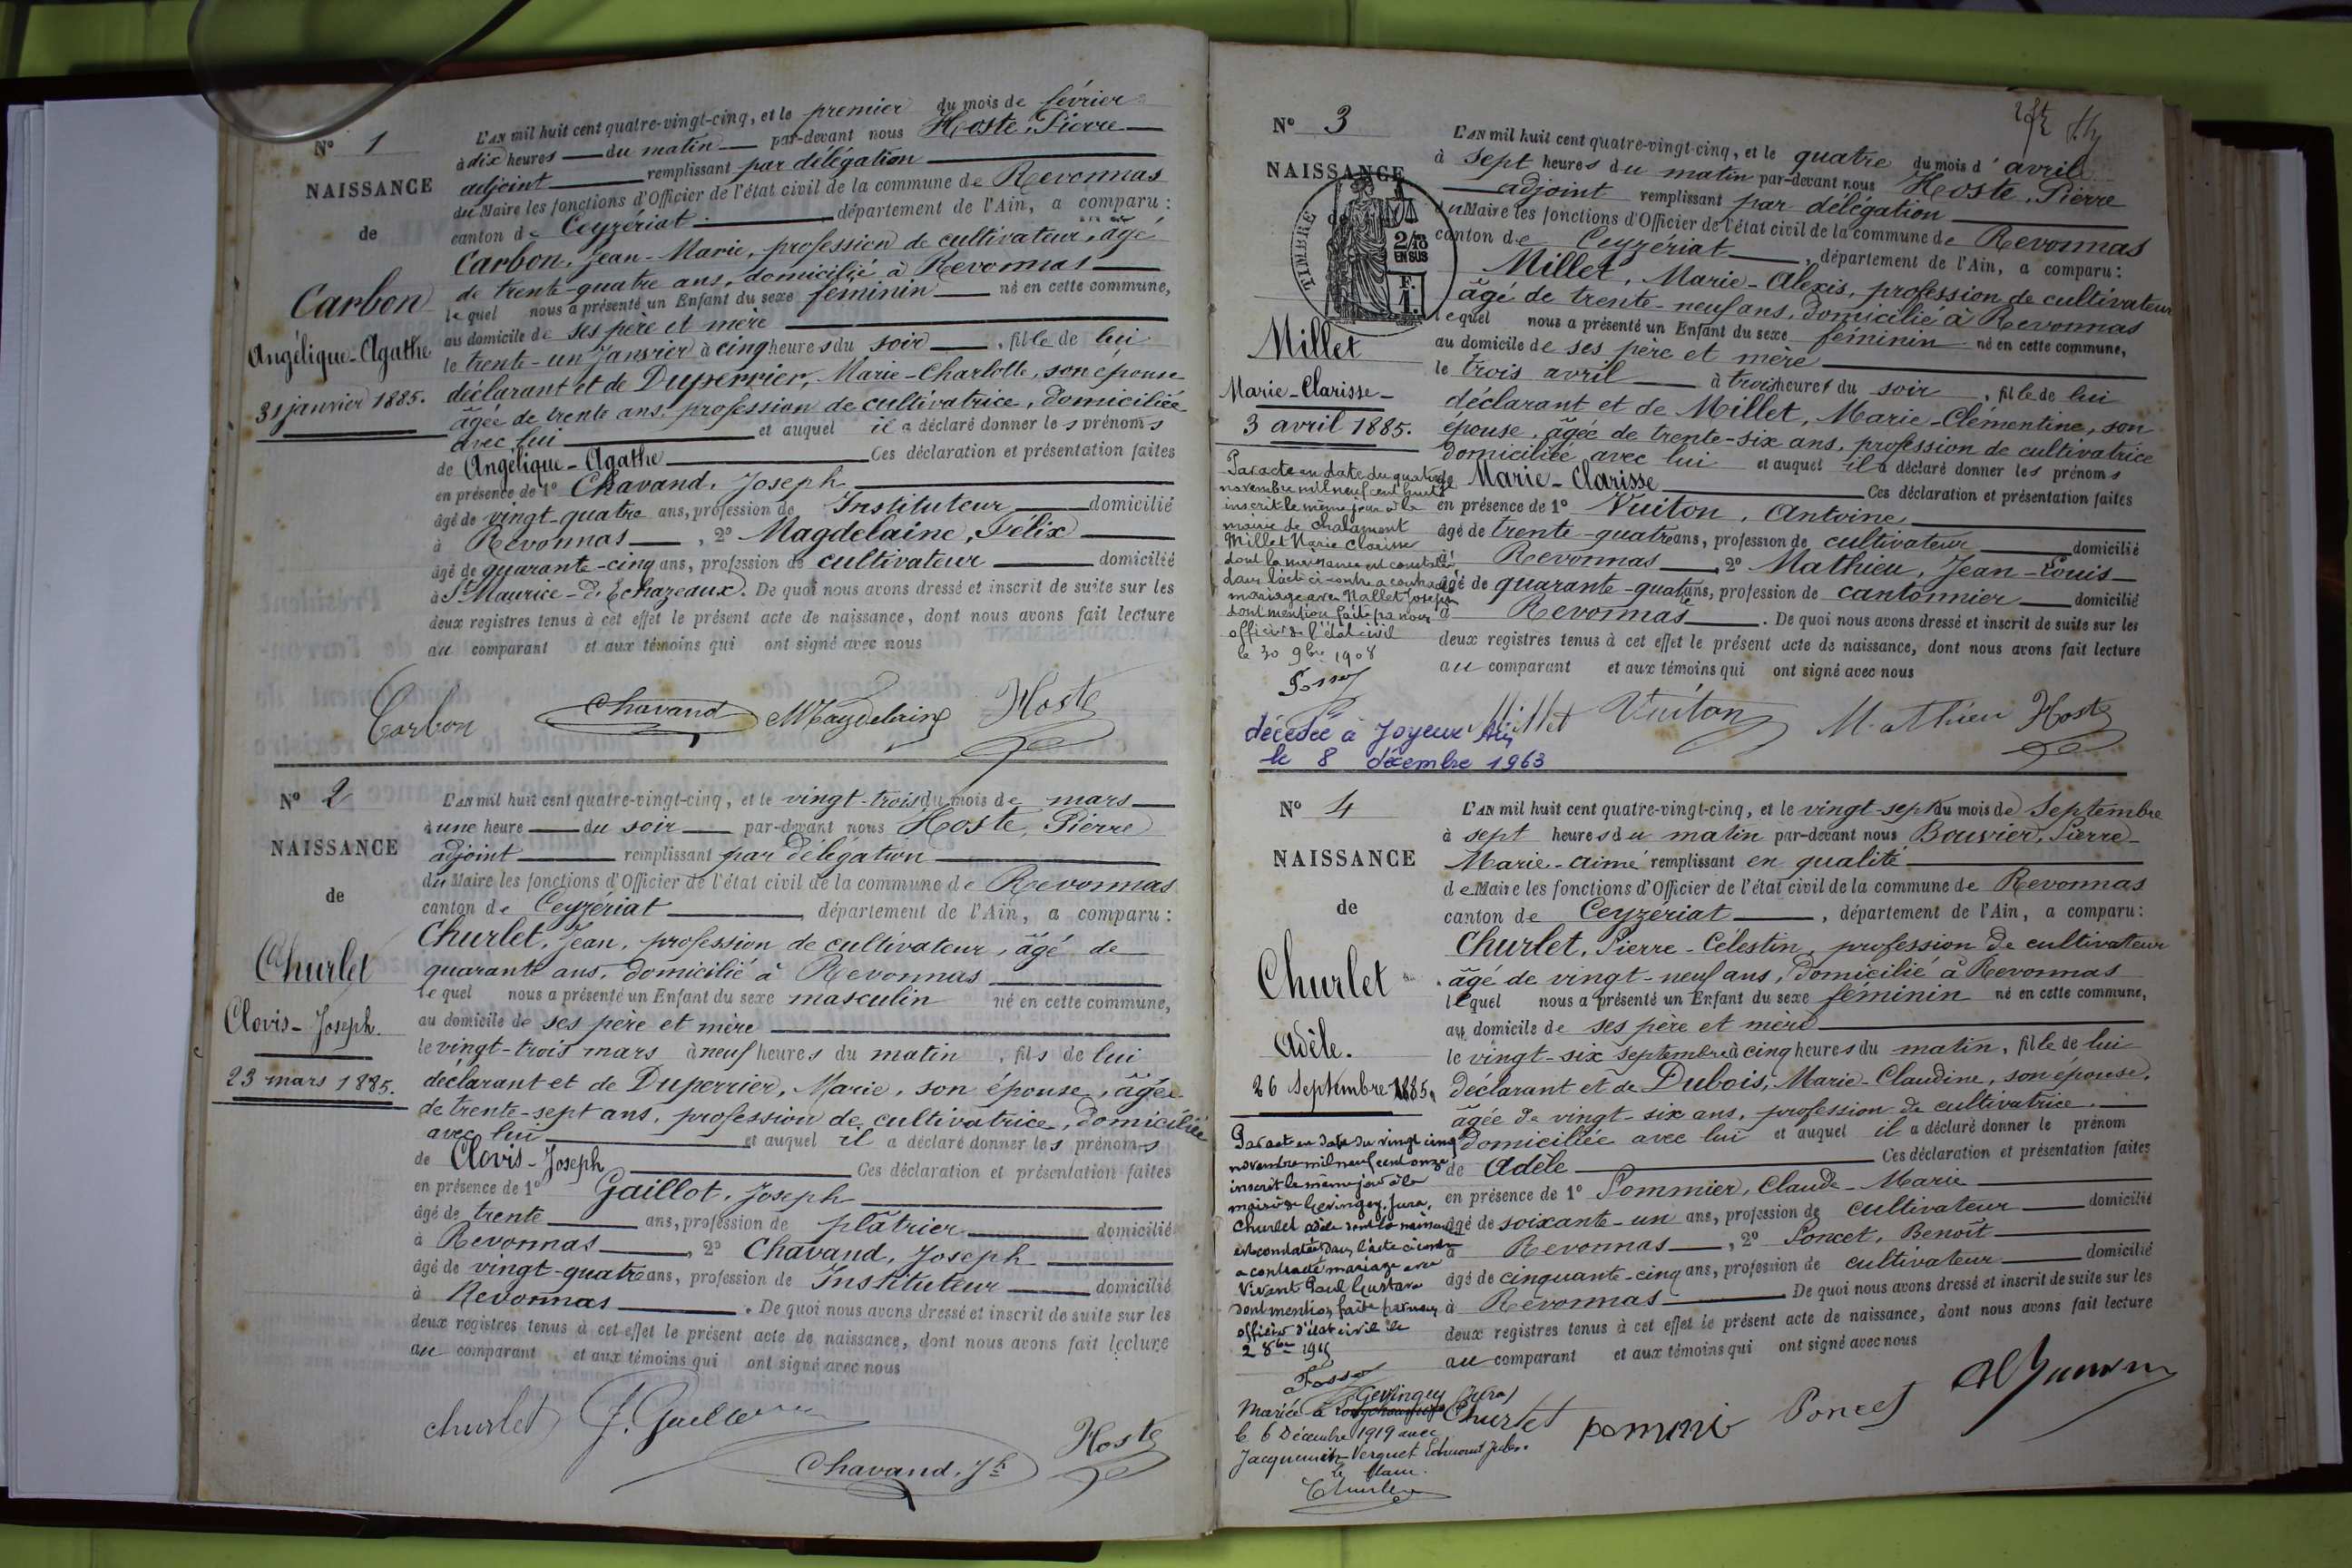 N° 1
NAISSANCE
de
Carbon
Angélique-Agathe
31 janvier 1885.
L'AN mil huit cent quatre-vingt-cinq, et le premier du mois de février
à dix heures du matin par-devant nous Hoste, Pierre
adjoint remplissant par délégation
du Maire les fonctions d'Officier de l'état civil de la commune de Revonnas
canton de Ceyzériat département de l'Ain, a comparu :
Carbon, Jean-Marie, profession de cultivateur, âgé
de trente-quatre ans, domicilié à Revonnas
lequel nous a présenté un Enfant du sexe féminin né en cette commune,
au domicile de ses père et mère
le trente-un Janvier à cinq heures du soir, fille de lui
déclarant et de Duperrier, Marie-Charlotte, son épouse
âgée de trente ans, profession de cultivatrice, domiciliée
avec lui et auquel il a déclaré donner les prénoms
de Angélique-Agathe Ces déclaration et présentation faites
en présence de 1° Chavand, Joseph
âgé de vingt-quatre ans, profession de Instituteur domicilié
à Revonnas, 2° Magdelaine, Félix
âgé de quarante-cinq ans, profession de cultivateur domicilié
à St Maurice-d'Echazeaux. De quoi nous avons dressé et inscrit de suite sur les
deux registres tenus à cet effet le présent acte de naissance, dont nous avons fait lecture
au comparant et aux témoins qui ont signé avec nous
Carbon Chavand Magdelaine Hoste
N° 2
NAISSANCE
de
Churlet
Clovis-Joseph.
23 mars 1885.
L'AN mil huit cent quatre-vingt-cinq, et le vingt-trois du mois de mars
à une heure du soir par-devant nous Hoste, Pierre
adjoint remplissant par délégation
du Maire les fonctions d'Officier de l'état civil de la commune de Revonnas
canton de Ceyzériat, département de l'Ain, a comparu :
Churlet, Jean, profession de cultivateur, âgé de
quarante ans, domicilié à Revonnas
lequel nous a présenté un Enfant du sexe masculin né en cette commune,
au domicile de ses père et mère
le vingt-trois mars à neuf heures du matin, fils de lui
déclarant et de Duperrier, Marie, son épouse, âgée
de trente-sept ans, profession de cultivatrice, domiciliée
avec lui et auquel il a déclaré donner les prénoms
de Clovis-Joseph Ces déclaration et présentation faites
en présence de 1° Gaillot, Joseph
âgé de trente ans, profession de plâtrier domicilié
à Revonnas, 2° Chavand, Joseph
âgé de vingt-quatre ans, profession de Instituteur domicilié
à Revonnas. De quoi nous avons dressé et inscrit de suite sur les
deux registres tenus à cet effet le présent acte de naissance, dont nous avons fait lecture
au comparant et aux témoins qui ont signé avec nous
churlet J. Gaillot
Chavand, Jh Hoste
N° 3
NAISSANCE
de
TIMBRE
2/10
EN SUS
F.
1.
Millet
Marie-Clarisse-
3 avril 1885.
Par acte en date du quatorze
novembre mil neuf cent huit
inscrit le même jour à la
mairie de Chalamont
Millet Marie Clarisse
dont la naissance est constatée
dans l'acte ci-contre a contracté
mariage avec Nallet Joseph
dont mention faite par nous
officier de l'état civil
le 30 9bre 1908
décédée à Joyeux Ain
le 8 décembre 1963
L'AN mil huit cent quatre-vingt-cinq, et le quatre du mois d'avril
à sept heures du matin par-devant nous Hoste, Pierre
adjoint remplissant par délégation
du Maire les fonctions d'Officier de l'état civil de la commune de Revonnas
canton de Ceyzériat, département de l'Ain, a comparu :
Millet, Marie-Alexis, profession de cultivateur
âgé de trente-neuf ans, domicilié à Revonnas
lequel nous a présenté un Enfant du sexe féminin né en cette commune,
au domicile de ses père et mère
le trois avril à trois heures du soir, fille de lui
déclarant et de Millet, Marie-Clémentine, son
épouse, âgée de trente-six ans, profession de cultivatrice
domiciliée avec lui et auquel il a déclaré donner les prénoms
de Marie-Clarisse Ces déclaration et présentation faites
en présence de 1° Vuiton, Antoine
âgé de trente-quatre ans, profession de cultivateur domicilié
à Revonnas, 2° Mathieu, Jean-Louis
âgé de quarante-quatre ans, profession de cantonnier domicilié
à Revonnas. De quoi nous avons dressé et inscrit de suite sur les
deux registres tenus à cet effet le présent acte de naissance, dont nous avons fait lecture
au comparant et aux témoins qui ont signé avec nous
Millet Vuiton Mathieu Hoste
N° 4
NAISSANCE
de
Churlet
Adèle.
26 Septembre 1885.
Par acte en date du vingt cinq
novembre mil neuf cent onze
inscrit le même jour à la
mairie de Gevingey, Jura,
Churlet Adèle dont la naissance
est constatée dans l'acte ci-contre
a contracté mariage avec
Vivant Paul Gustave
dont mention faite par nous
officier d'état civil le
2 8bre
Gevingey (Jura)
Mariée à
le 6 Décembre 1919 avec
Jacquemin-Verguet Edmond Jules.
Le Maire
Churlet
L'AN mil huit cent quatre-vingt-cinq, et le vingt-sept du mois de Septembre
à sept heures du matin par-devant nous Bouvier, Pierre-
Marie-Aimé remplissant en qualité
de Maire les fonctions d'Officier de l'état civil de la commune de Revonnas
canton de Ceyzeriat, département de l'Ain, a comparu :
Churlet, Pierre-Célestin, profession de cultivateur
âgé de vingt-neuf ans, domicilié à Revonnas
lequel nous a présenté un Enfant du sexe féminin né en cette commune,
au domicile de ses père et mère
le vingt-six septembre à cinq heures du matin, fille de lui
déclarant et de Dubois, Marie-Claudine, son épouse,
âgée de vingt-six ans, profession de cultivatrice,
domiciliée avec lui et auquel il a déclaré donner le prénom
de Adèle Ces déclaration et présentation faites
en présence de 1° Pommier, Claude-Marie
âgé de soixante-un ans, profession de cultivateur domicilié
à Revonnas, 2° Poncet, Benoît
âgé de cinquante-cinq ans, profession de cultivateur domicilié
à Revonnas. De quoi nous avons dressé et inscrit de suite sur les
deux registres tenus à cet effet le présent acte de naissance, dont nous avons fait lecture
au comparant et aux témoins qui ont signé avec nous
Churlet pommie Poncet